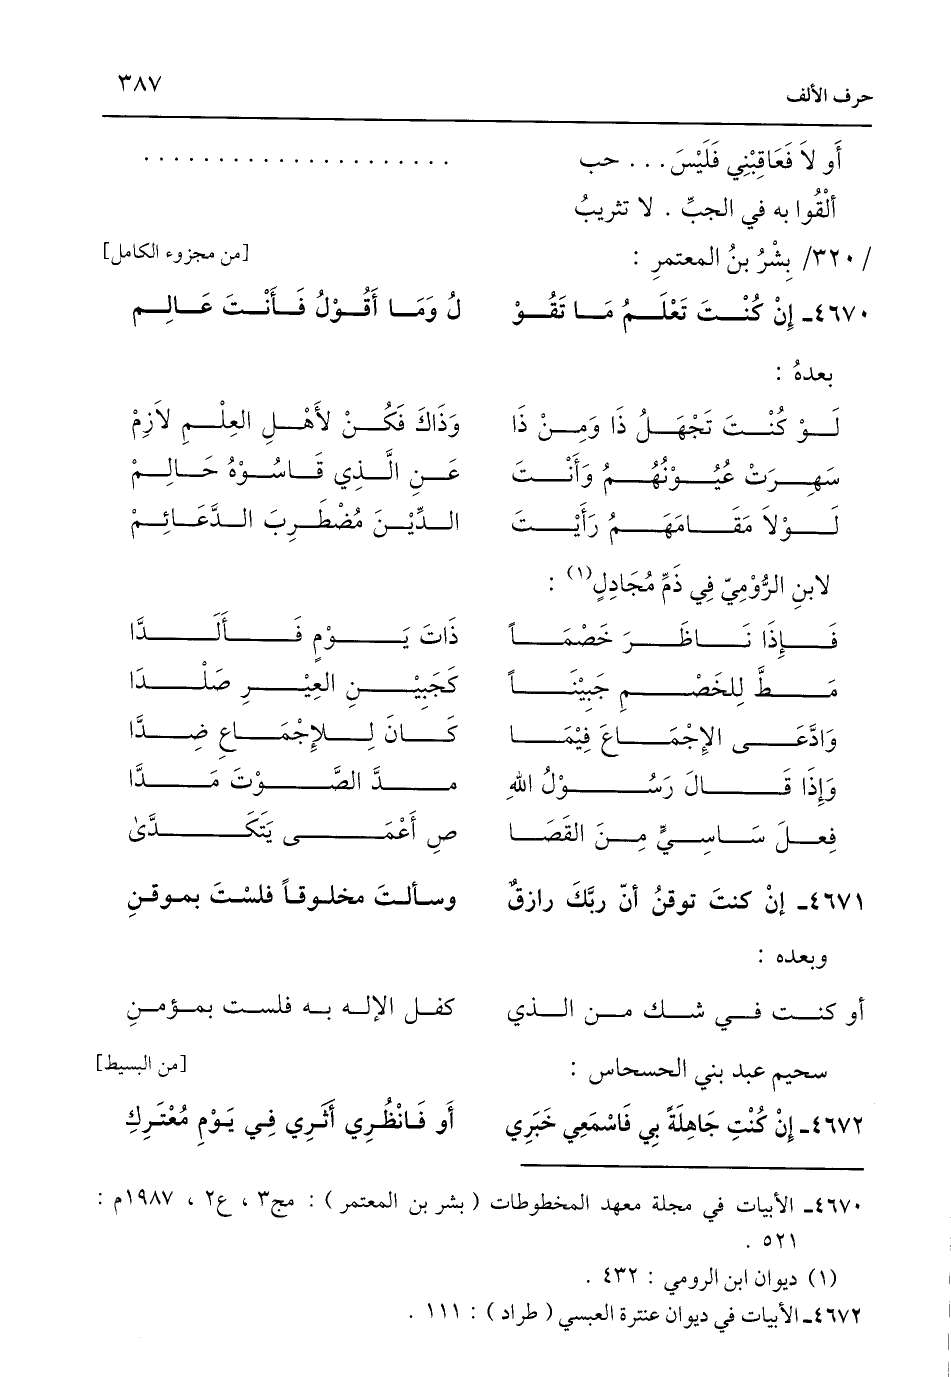 حرف الألف ٣٨٧
أَو لاَ فَعَاقِبْنِي فَلَيْسَ . . . حب . . . . . . . . . . . . . . . . . . . . .
ألْقُوا به في الجبِّ . لا تثريبُ
/٣٢٠/ بِشْرُ بنُ المعتمرِ : [من مجزوء الكامل]
٤٦٧٠ـ إِنْ كُنْتَ تَعْلَمُ مَا تَقُوْ لُ وَمَا أَقُوْلُ فَأَنْتَ عَالِم
بعدهُ :
لَوْ كُنْتَ تَجْهَلُ ذَا وَمِنْ ذَا وَذَاكَ فَكُنْ لأَهْلِ العِلْمِ لاَزِمْ
سَهِرَتْ عُيُوْنُهُمُ وَأَنْتَ عَنِ الَّذِي قَاسُوْهُ حَالِمْ
لَوْلاَ مَقَامَهَمُ رَأَيْتَ الدِّيْنَ مُضْطَرِبَ الدَّعَائِمْ
لابنِ الرُّوْمِيّ فِي ذَمِّ مُجَادِلٍ(١) :
فَإِذَا نَاظَرَ خَصْمَاً ذَاتَ يَوْمٍ فَأَلَدَّا
مَطَّ لِلخَصْمِ جَبِيْنَاً كَجَبِيْنِ العِيْرِ صَلْدَا
وَادَّعَى الإِجْمَاعَ فِيْمَا كَانَ لِلإِجْمَاعِ ضِدَّا
وَإِذَا قَالَ رَسُوْلُ اللهِ مدَّ الصَّوْتَ مَدَّا
فِعلَ سَاسِيٍّ مِنَ القَصَا صِ أَعْمَى يَتَكَدَّىْ
٤٦٧١ـ إنْ كنتَ توقنُ أنّ ربَّكَ رازقٌ وسألتَ مخلوقاً فلسْتَ بموقنِ
وبعده :
أو كنت في شك من الذي كفل الإله به فلست بمؤمنِ
سحيم عبد بني الحسحاس : [من البسيط]
٤٦٧٢ـ إِنْ كُنْتِ جَاهِلَةً بِي فَاسْمَعِي خَبَرِي أَو فَانْظُرِي أَثَرِي فِي يَوْمِ مُعْتَرِكِ
٤٦٧٠ـ الأبيات في مجلة معهد المخطوطات ( بشر بن المعتمر ) : مج٣ ، ع٢ ، ١٩٨٧م :
٥٢١ .
(١) ديوان ابن الرومي : ٤٣٢ .
٤٦٧٢ـ الأبيات في ديوان عنترة العبسي ( طراد ) : ١١١ .